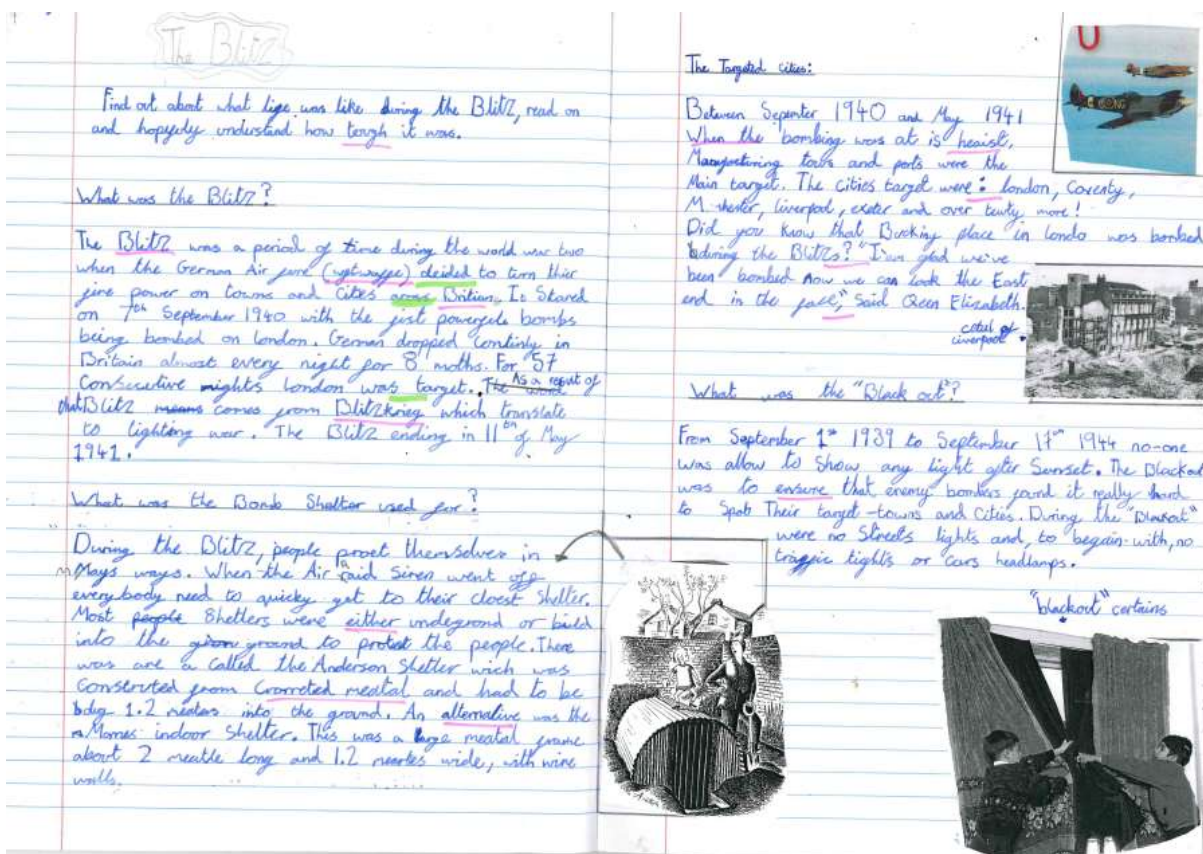 The Blitz
Find out about what life was like during the Blitz, read on
and hopefuly understand how tough it was.
What was the Blitz?
The Blitz was a period of time during the world war two
when the German Air forse (luftwaffe) deided to turn thier
fire power on towns and cities aross Britian. It Stared
on 7th September 1940 with the fist powerfele bombs
being bombed on london. German dropped contlinly in
Britain almost every night for 8 moths. For 57
Consecutive nights London was target. As a result of
that Blitz comes from Blitzkrieg which translate
to lighting war. The Blitz ending in 11th of May
1941.
What was the Bomb Shelter used for?
During the Blitz, people protet themselves in
Mays ways. When the Air raid Siren went off
everybody need to quicky get to their cloest shelter.
Most people Shetlers were either undegrond or build
into the ground to protet the people. There
was are a called the Anderson Shelter wich was
Constructed from Crorreted meatal and had to be
dig 1.2 meters into the ground. An alternative was the
Morres indoor Shelter. This was a large meatal frame
about 2 meatle long and 1.2 meartes wide, with wire
walls.
The Targeted cities:
Between Sepemter 1940 and May 1941
When the bombing was at is heaist,
Manufacturing tows and ports were the
Main target. The cities target were: london, Coventy,
liverpool, exeter and over tewty more!
Did you know that Bucking place in londo was bombed
during the Blitzs? "I'am glad we've
been bombed Now we can look the East
end in the face," Said Qeen Elizabeth.
liverpool
What was the "Black out"?
From September 1st 1939 to September 17th 1944 no-one
was allow to Show any light after Sunset. The Blackout
was to ensure that enemy bombers found it really hard
to Spot Their target-towns and Cities. During the "Blackout"
were no Streets lights and, to begain with, no
traffic tights or cars headlamps.
"blackout" certains